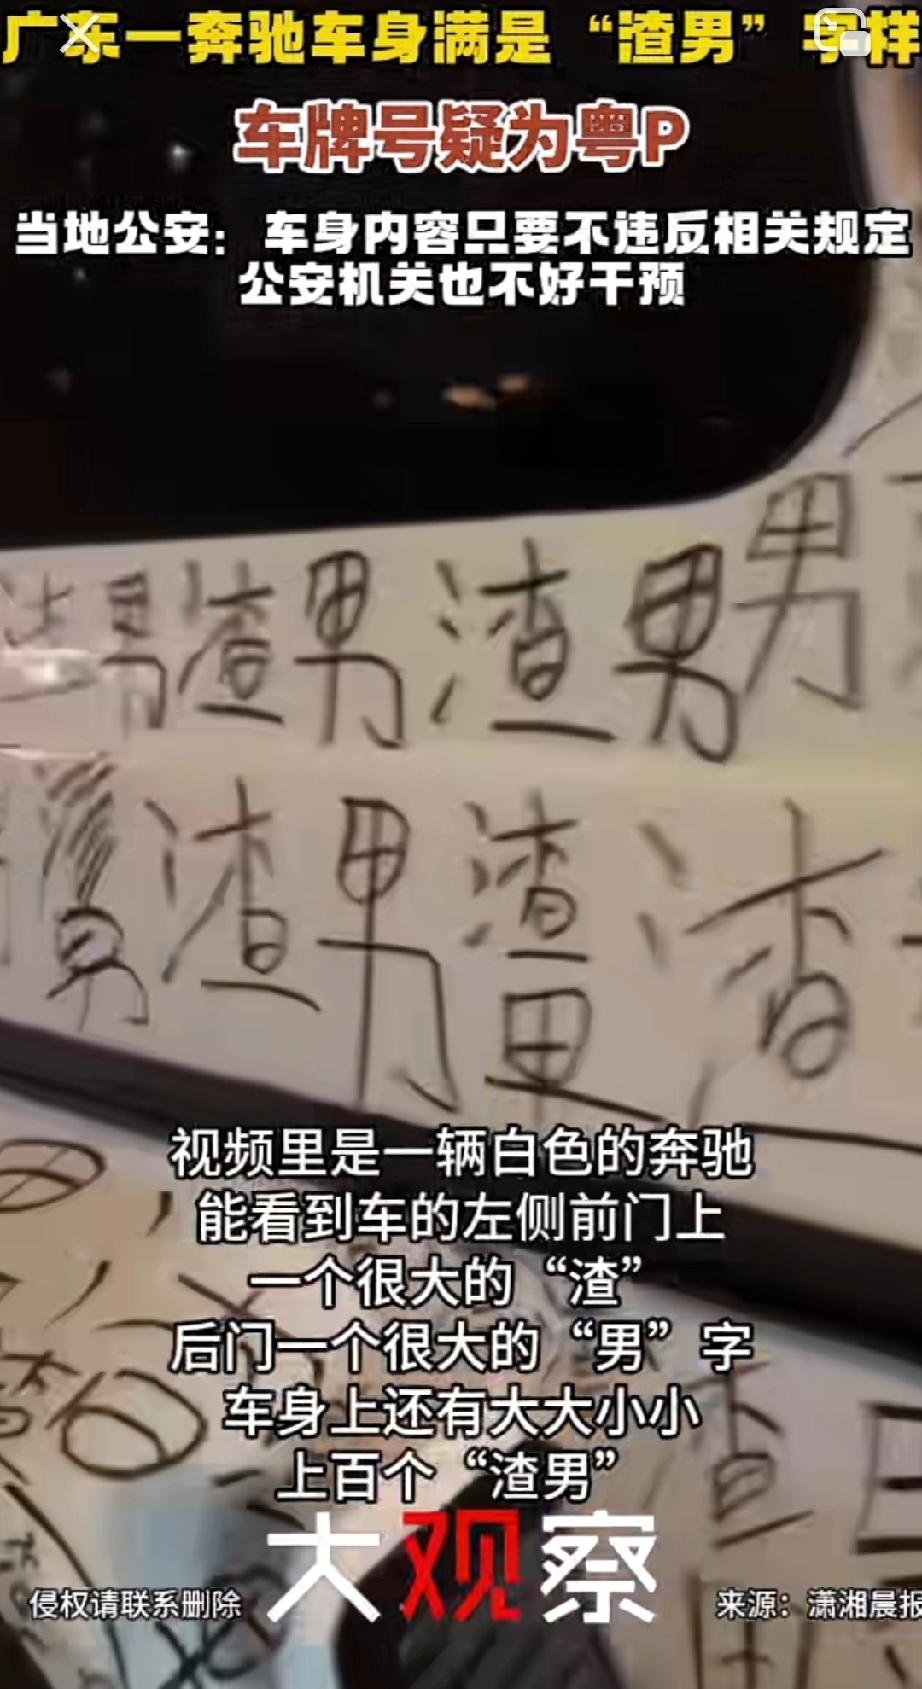 广东一奔驰车身满是“渣男”字样
车牌号疑为粤P
当地公安：车身内容只要不违反相关规定
公安机关也不好干预
渣男渣男渣男男
男渣男渣渣
男
视频里是一辆白色的奔驰
能看到车的左侧前门上
一个很大的“渣”
后门一个很大的“男”字
车身上还有大大小小
上百个“渣男”
渣
大观察
侵权请联系删除
来源：潇湘晨报